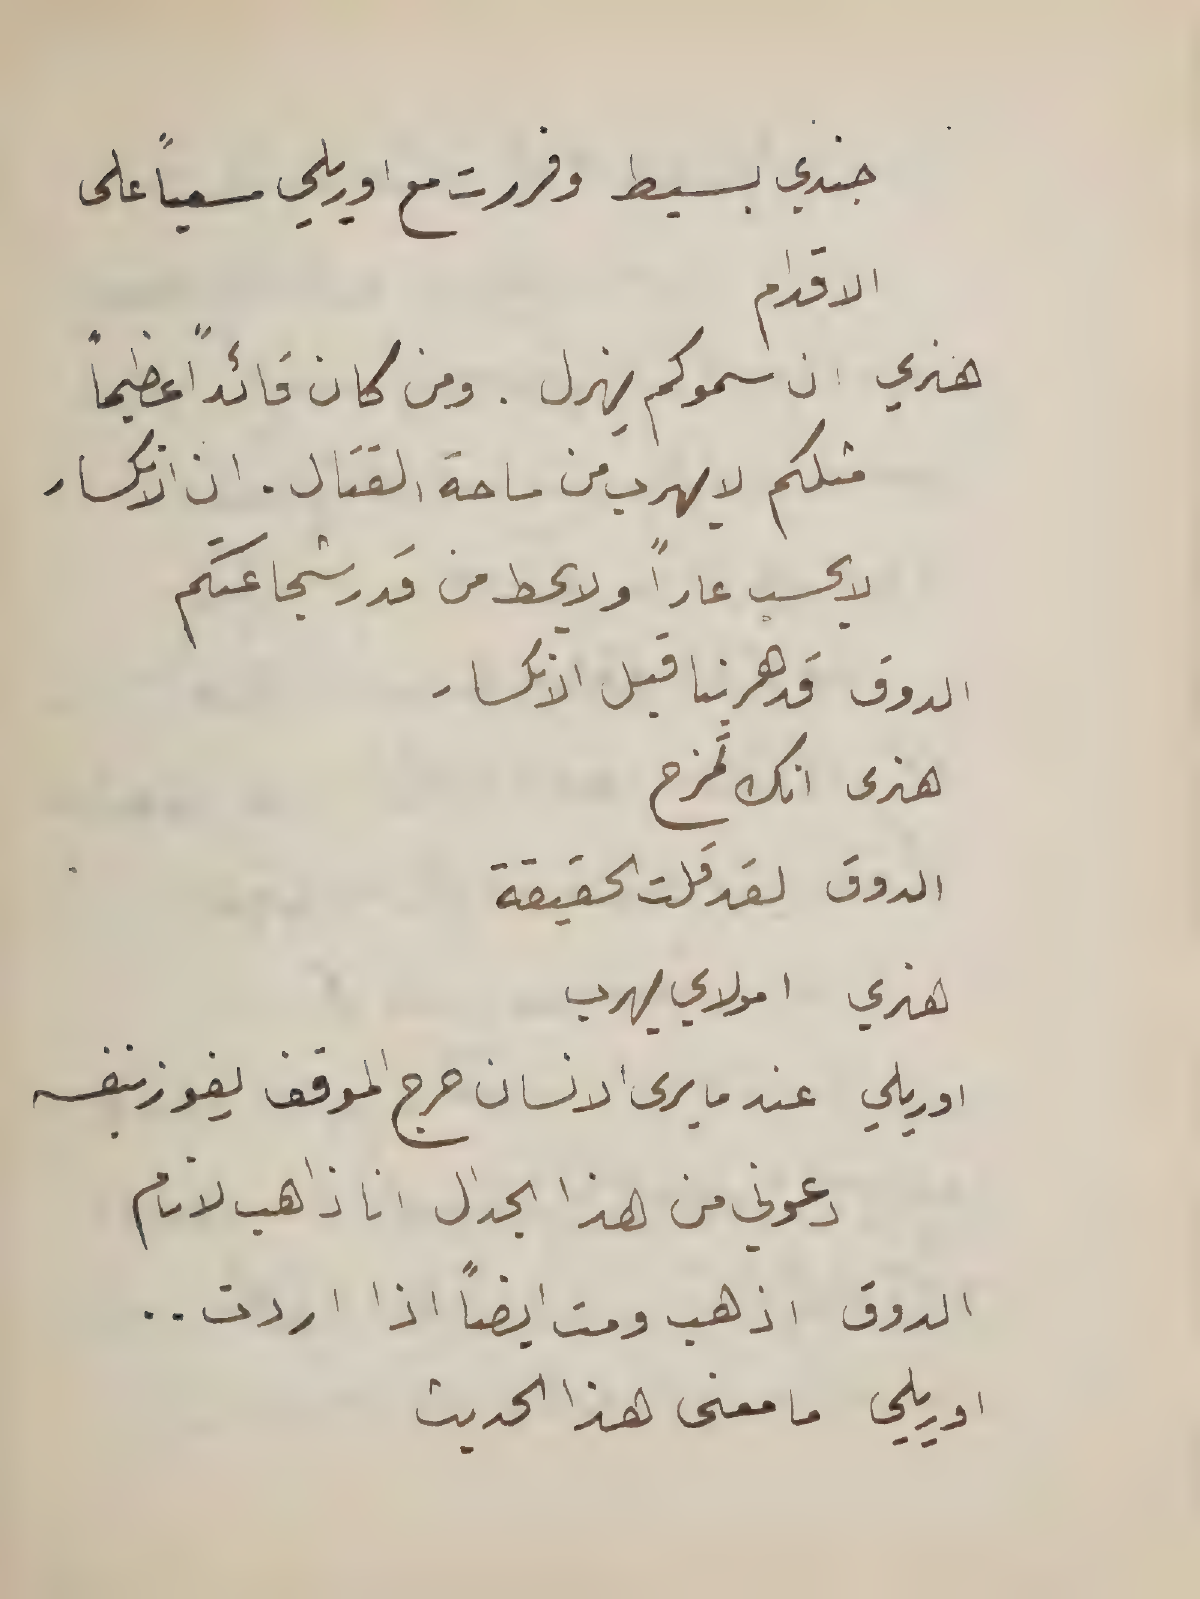 جندي بسيط وفررت مع اوريلي سعياً على
الاقدام
هنري ان سموكم يهزل . ومن كان قائداً عظيماً
مثلكم لا يهرب من ساحة القتال . ان الانكسار
لا يحسب عاراً ولا يحط من قدر شجاعتكم
الدوق قد هربنا قبل الانكسار
هنرى انك تمزح
الدوق لقد قلت الحقيقة
هنري امولاي يهرب
اوريلي عندما يرى الانسان حرج الموقف يفوز بنفسه
دعوني من هذا الجدال انا ذاهب لانام
الدوق اذهب ومت ايضاً اذا اردت ..
اوريلي ما معنى هذا الحديث